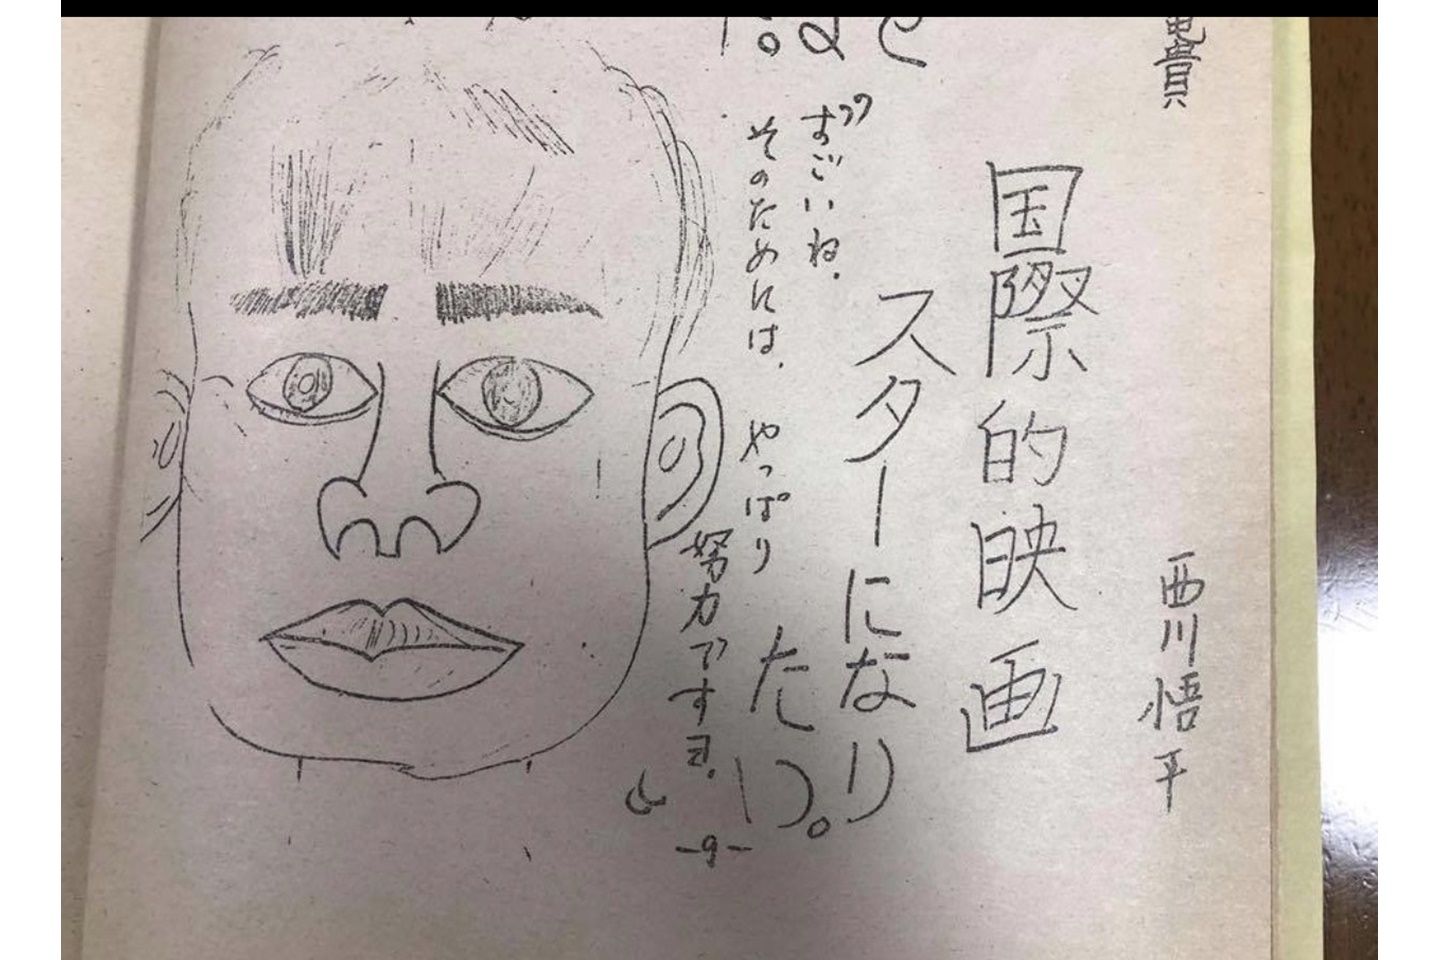 西川悟平
国際的映画
スターになり
たい。
すごいね.
そのためには、やっぱり
努力ですヨ.
-9-